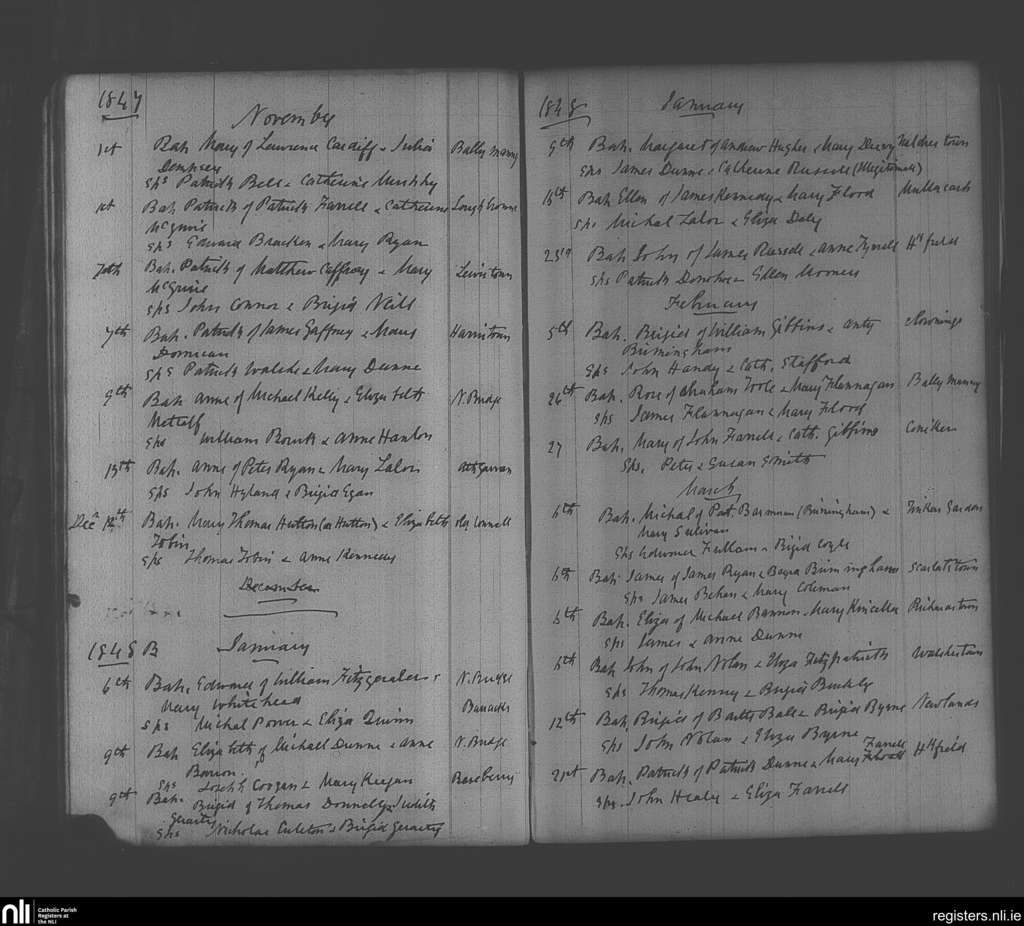 1847
November
1st Bap. Mary of Lawrence Cardiff & Julia Ballymanny
Dempsey
Sps Patrick Bell & Catherine Murphy
1st Bap. Patrick of Patrick Farrell & Catherine Loughbrowne
McGuire
Sps Edward Bracken & Mary Ryan
7th Bap. Patrick of Matthew Caffray & Mary Lewistown
McGuire
Sps John Connor & Brigid Neill
7th Bap. Patrick of James Gaffney & Mary Harristown
Domican
Sps Patrick Walsh & Mary Dunne
9th Bap. Anne of Michael Kelly & Elizabeth N. Bridge
Metcalf
Sps William Bourk & Anne Hanlon
13th Bap. Anne of Peter Ryan & Mary Lalor Athgarvan
Sps John Hyland & Brigid Egan
Decr 12th Bap. Mary Thomas Hutton (or Hutton) & Elizabeth
Tobin
Sps Thomas Tobin & Anne Kennedy
December
1848 B January
6th Bap. Edward of William Fitzgerald & N. Bridge
Mary Whitehead Barracks
Sps Michal Power & Eliza Quinn
9th Bap. Elizabeth of Michael Dunne & Anne N. Bridge
Sps Joseph Coogan & Mary Keegan Roseberry
9th Bap. Brigid of Thomas Donnelly & Judith
Geraty
Sps Nicholas & Brigid Geraty
1848 January
9th Bap. Margaret of Andrew Hughes & Mary Darcy Walshestown
Sps James Dunne & Catherine Russell (Illegitimate)
16th Bap. Ellen of James Kennedy & Mary Flood
Sps Michal Lalor & Eliza Daly
23rd Bap. John of James Russell & Anne Tyrrell Hd field
Sps Patrick Donohoe & Ellen
February
5th Bap. Brigid of William Gibbins & Anty Rownings
Birmingham
Sps John Handy & Cath. Stafford
26th Bap. Rose of Abraham Toole & Mary Flannagan Ballymanny
Sps James Flannagan & Mary Flood
27 Bap. Mary of John Farrell & Cath. Gibbins
Sps. Peter & Susan Smith
March
6th Bap. Michal of Pat (Birmingham) &
Mary Sulivan
Sps Edward Fullam & Brigid Coyle
6th Bap. James of James Ryan & Birmingham Scarletstown
Sps James Behan & Mary Coleman
6th Bap. Eliza of Michael Bannon & Mary Kinsella Richardstown
Sps James & Anne Dunne
6th Bap. John of John Nolan & Eliza Fitzpatrick Walshestown
Sps Thomas Kenny & Brigid Buckly
12th Bap. Brigid of Bartle Ball & Brigid Byrne Newlands
Sps John Nolan & Eliza Byrne
21st Bap. Patrick of Patrick Dunne & Mary Farrell Hd field
Sps. John Healy & Eliza Farrell
nli Catholic Parish
Registers at
the NLI
registers.nli.ie